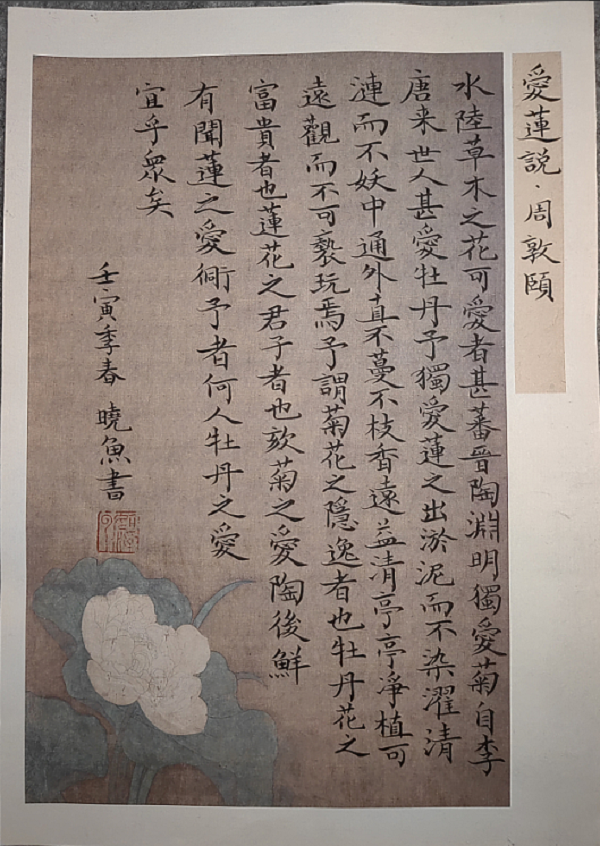 愛蓮説·周敦頤
水陸草木之花可愛者甚蕃晉陶淵明獨愛菊自李
唐来世人甚愛牡丹予獨愛蓮之出淤泥而不染濯清
漣而不妖中通外直不蔓不枝香遠益清亭亭淨植可
遠觀而不可褻玩焉予謂菊花之隱逸者也牡丹花之
富貴者也蓮花之君子者也欬菊之愛陶後鮮
有聞蓮之愛衕予者何人牡丹之愛
宜乎衆矣
壬寅季春 曉魚書